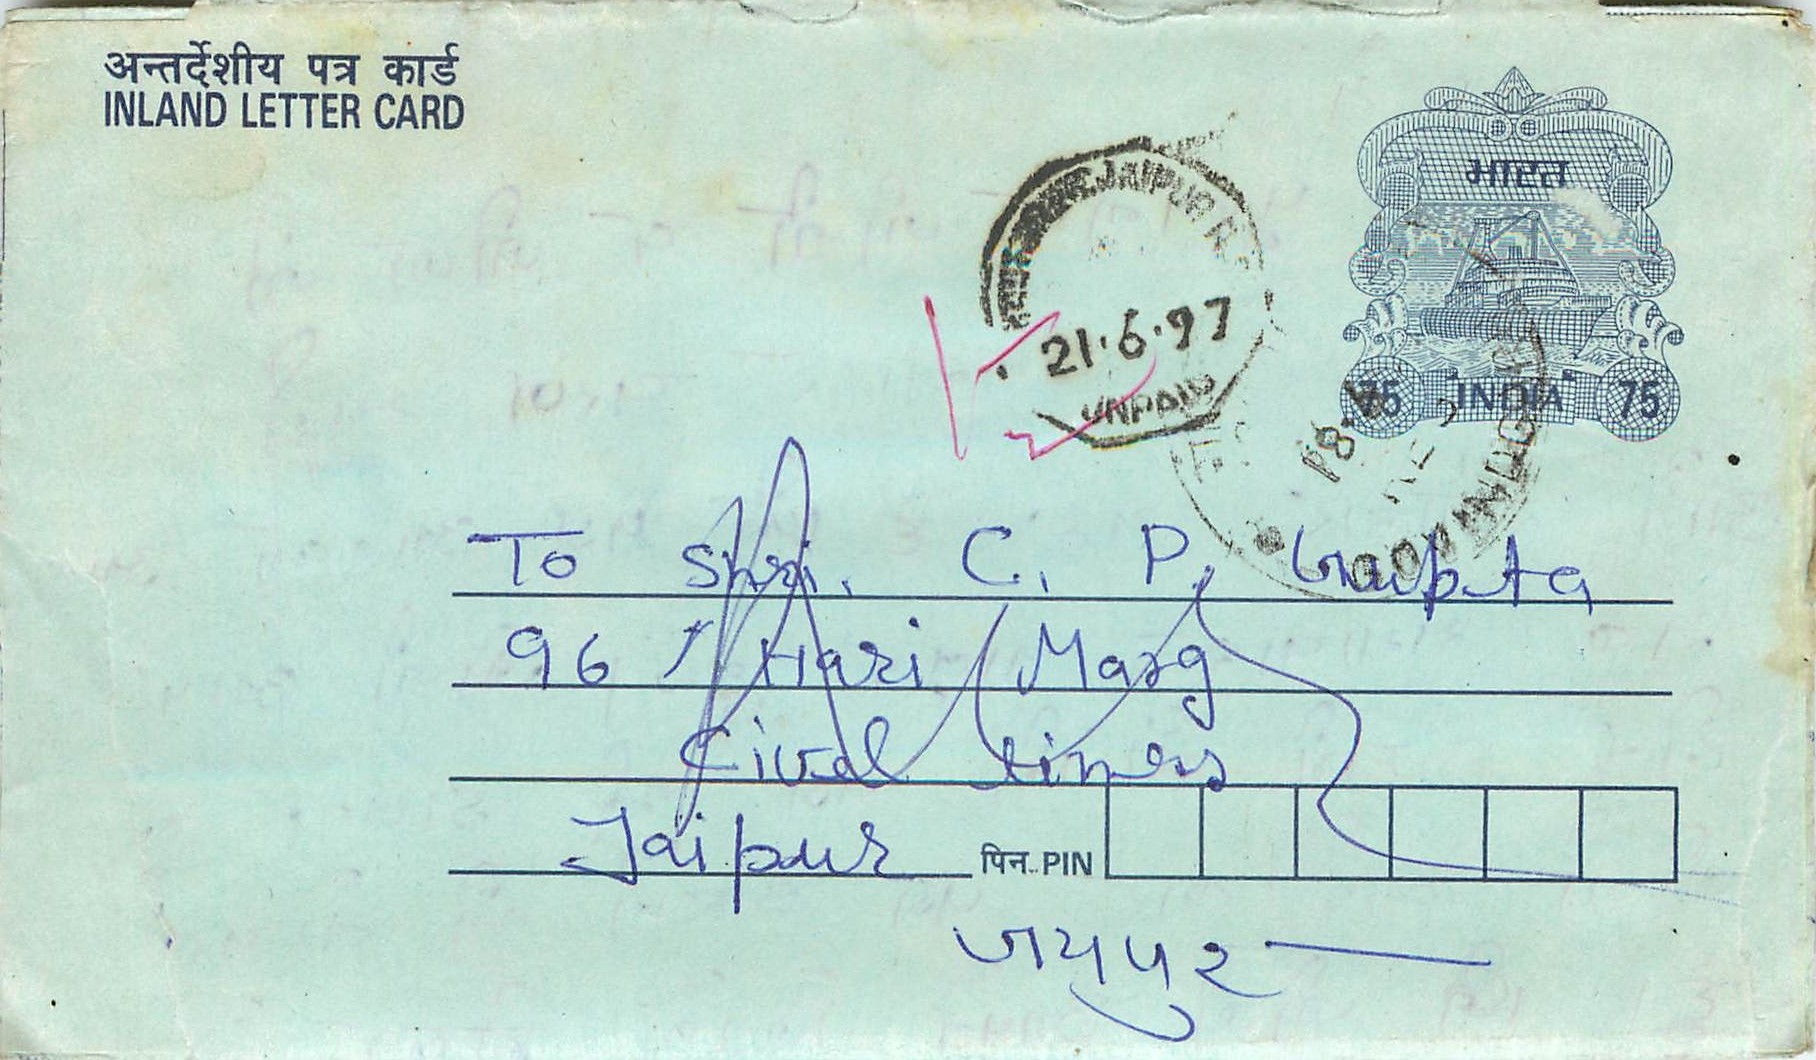 अन्तर्देशीय पत्र कार्ड
INLAND LETTER CARD
भारत
75 INDIA 75
JAIPUR R.
21.6.97
UNPAID
18.
To Shri. C. P. Gupta
96 / Hari Marg
Cival lines
Jaipur
पिन PIN
जयपुर